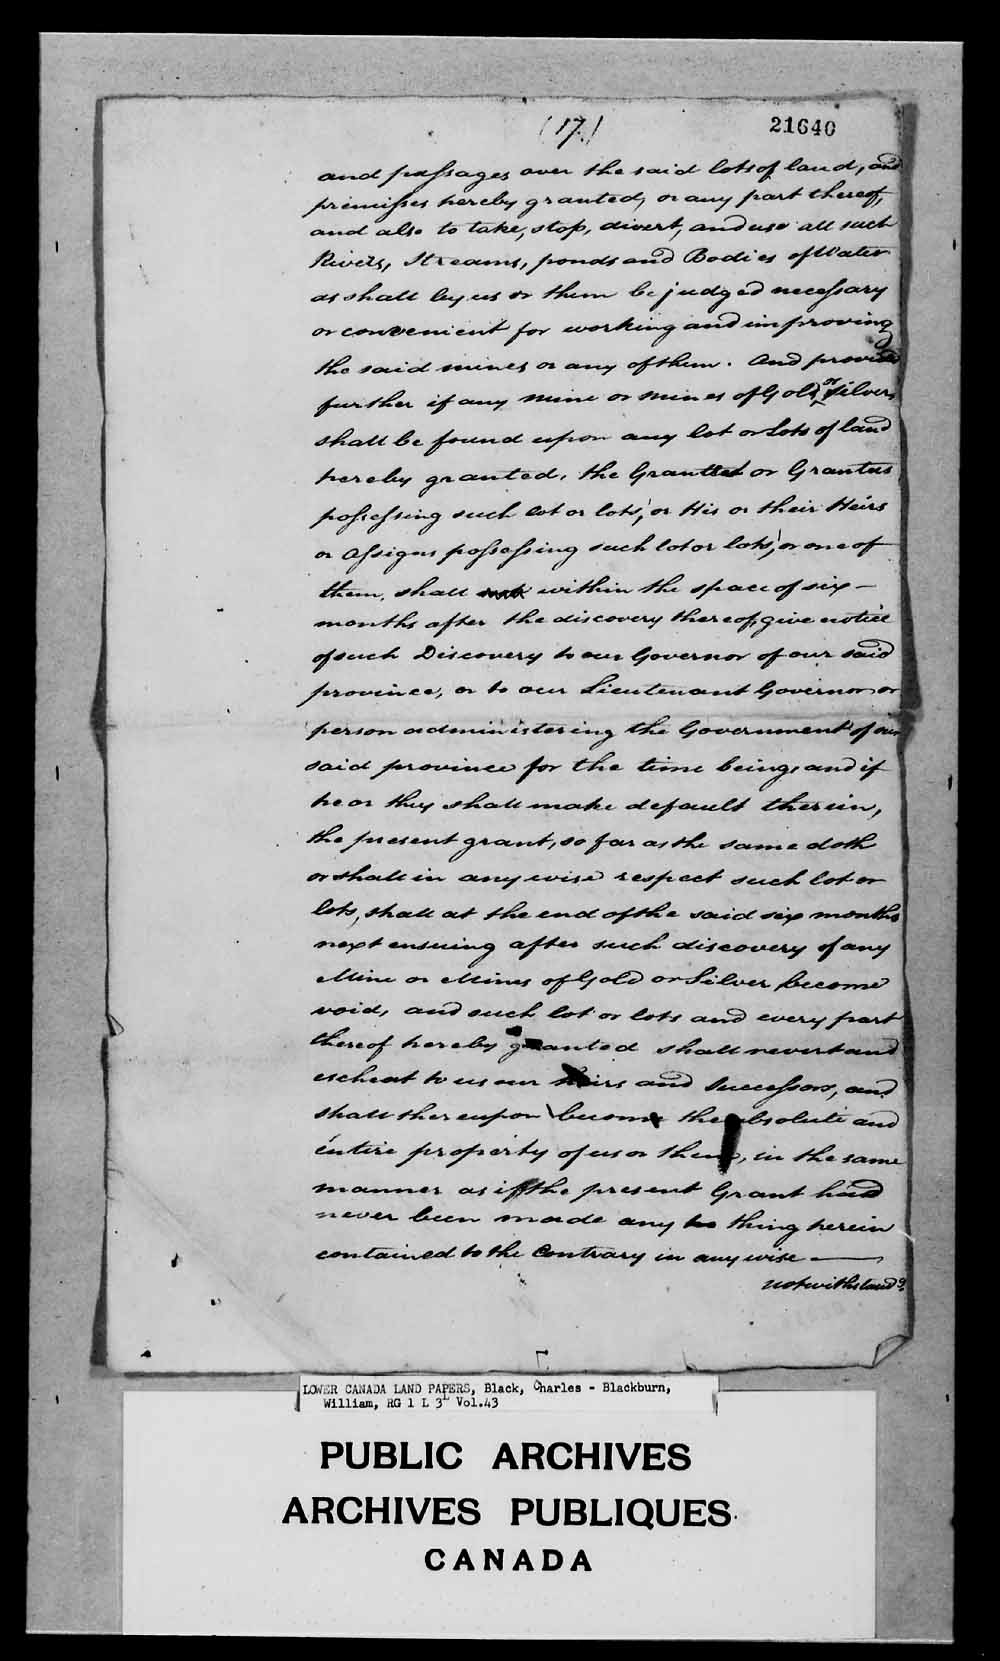 (17.)
21640
and passages over the said lots of land, and
premisses hereby granted, or any part thereof,
and also to take, stop, divert, and use all such
Rivers, Streams, ponds and Bodies of Water
as shall by us or them be judged necessary
or convenient for working and improving
the said mines or any of them. And provided
further if any mine or mines of Gold, or Silver,
shall be found upon any lot or Lots of land
hereby granted, the Grantee or Grantees
possessing such lot or lots, or His or their Heirs
or Assigns possessing such lot or lots, or one of
them, shall within the space of six —
months after the discovery thereof, give notice
of such Discovery to our Governor of our said
province, or to our Lieutenant Governor or
person administering the Government of our
said province for the time being, and if
he or they shall make default therein,
the present grant, so far as the same doth
or shall in any wise respect such lot or
lots, shall at the end of the said six months
next ensuing after such discovery of any
Mine or Mines of Gold or Silver become
void, and such lot or lots and every part
thereof hereby granted shall revert and
escheat to us our Heirs and Successors, and
shall thereupon become the absolute and
entire property of us or them, in the same
manner as if the present Grant had
never been made any thing herein
contained to the Contrary in any wise —
notwithstandg.
LOWER CANADA LAND PAPERS, Black, Charles - Blackburn,
William, RG 1 L 3L Vol.43
PUBLIC ARCHIVES
ARCHIVES PUBLIQUES
CANADA